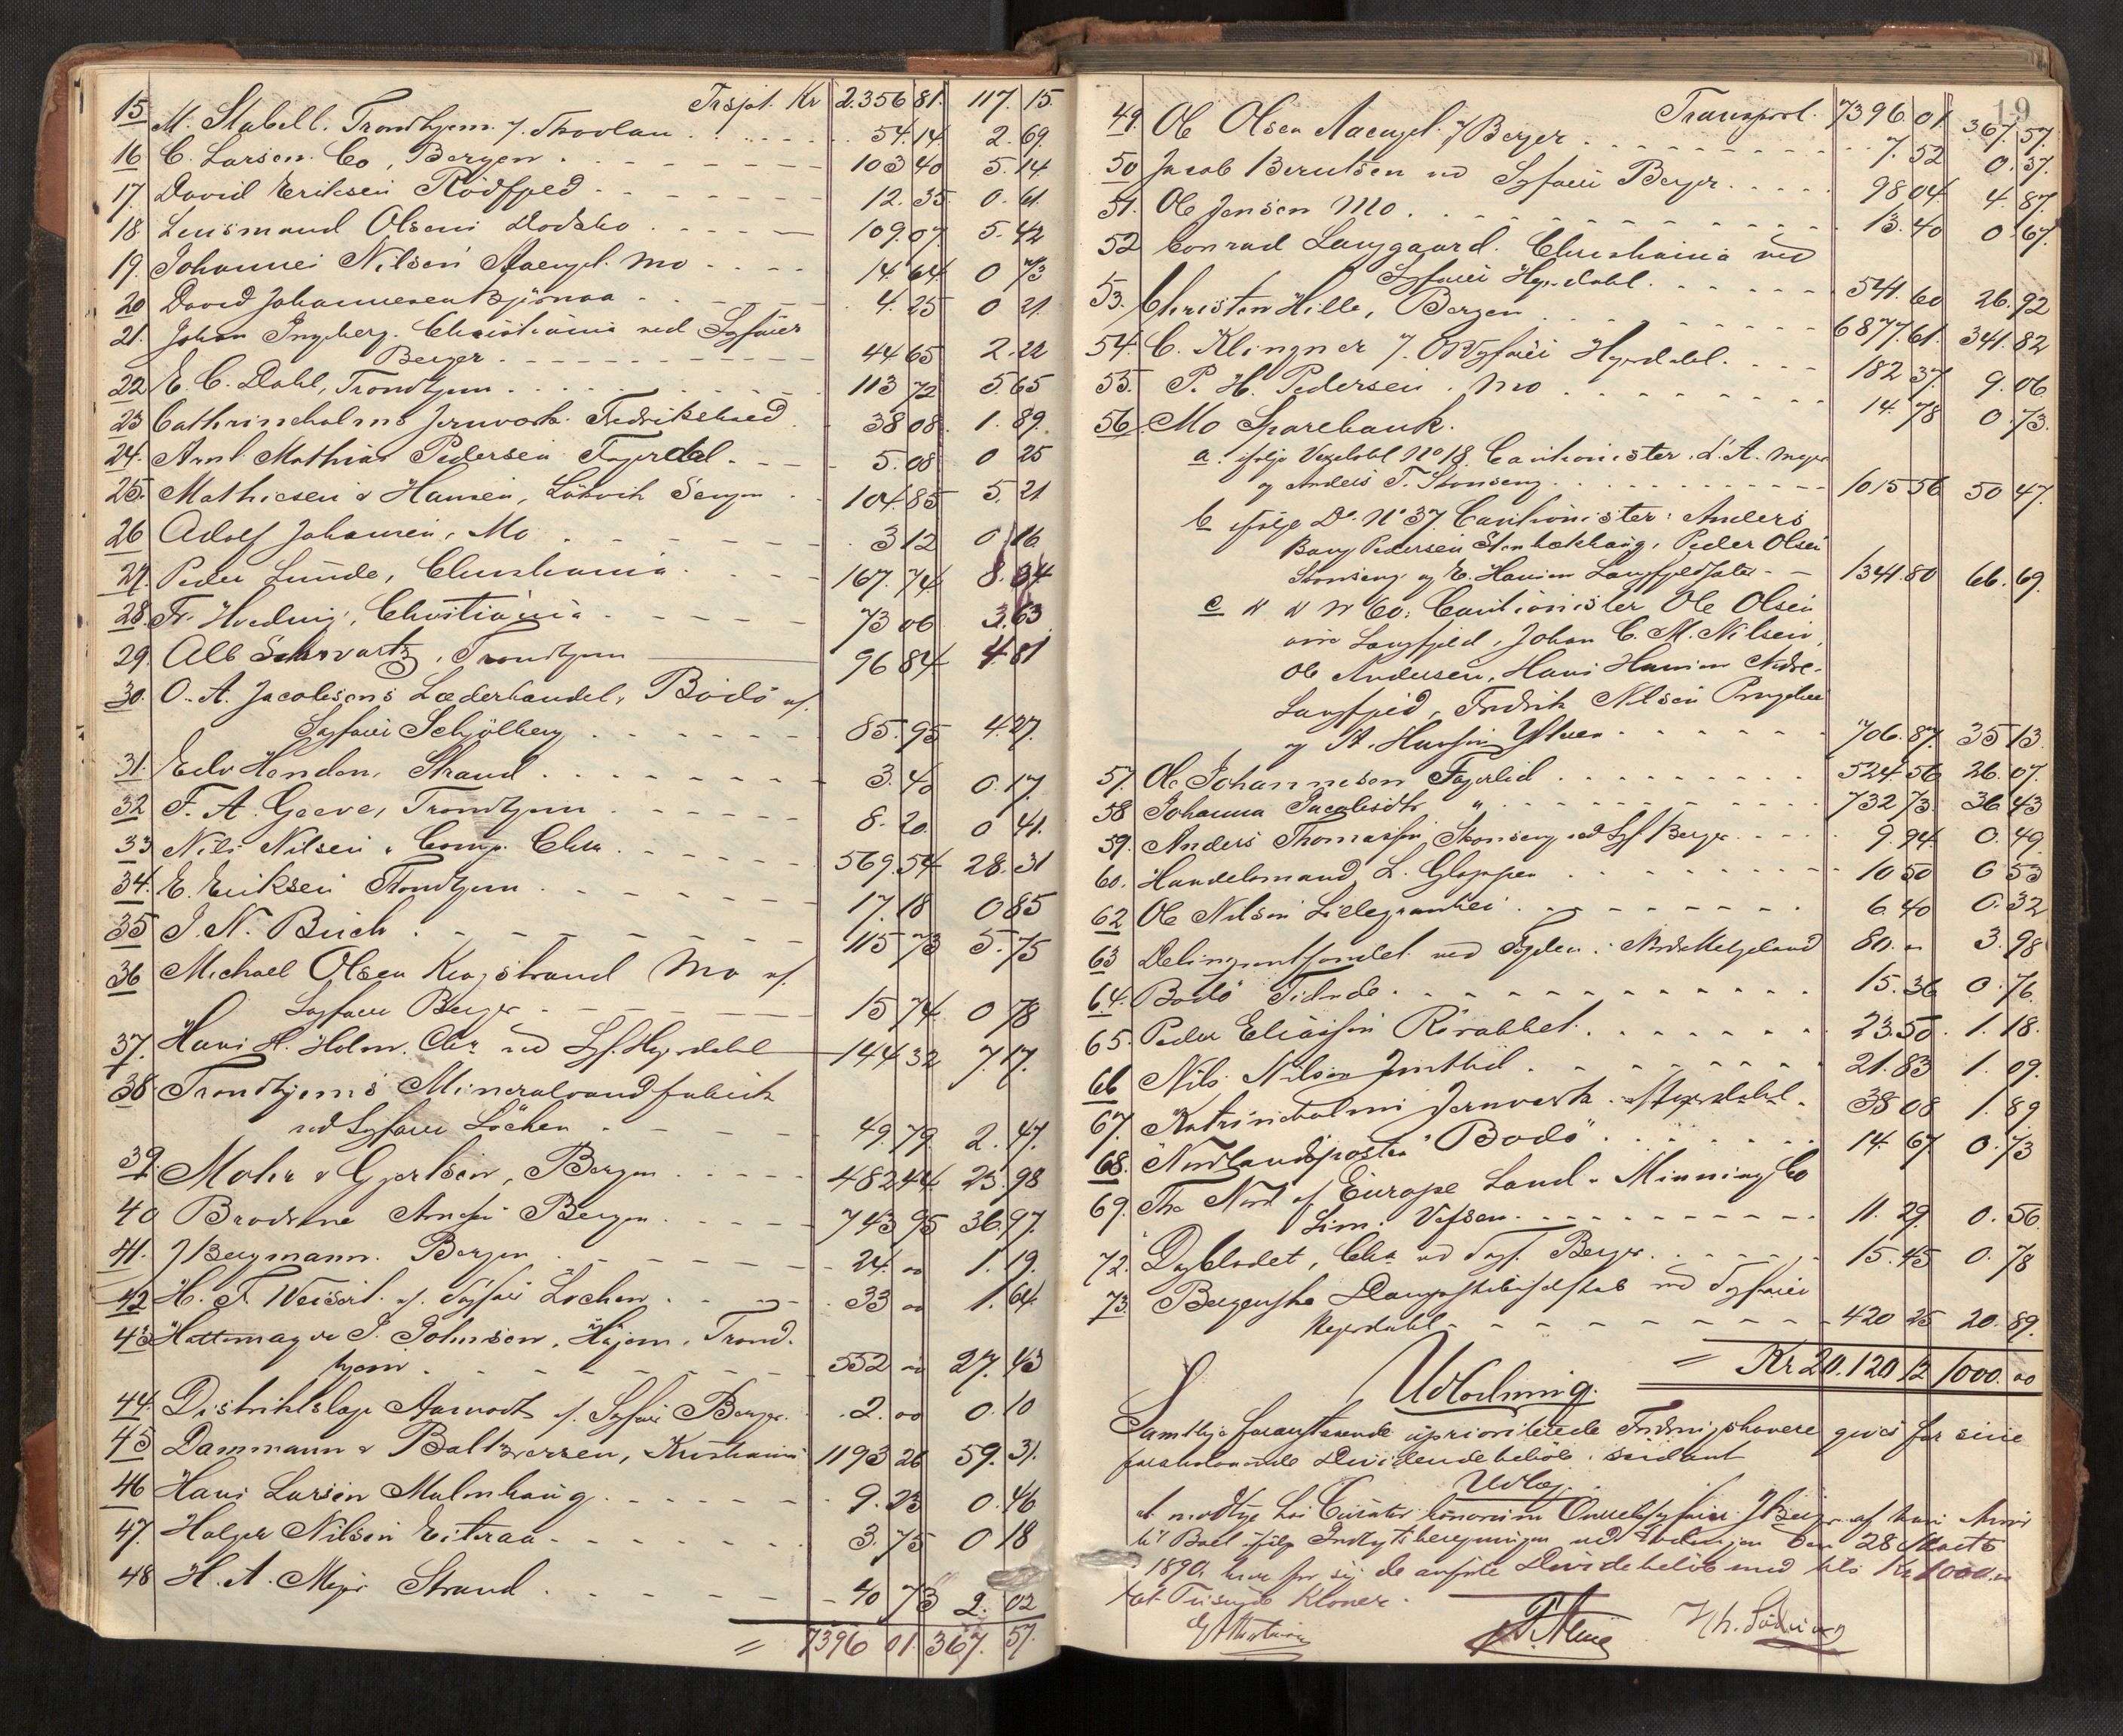 Trspt. Kr 2.356 81. 117. 15.
15 M. Stabell. Trondhjem. 54.14. 2.69.
16 C. Larsen. Co, Bergen. 103 40 5.14.
17. David Eriksen Rödfjeld 12.35 0.61.
18 Lensmand Olsens Dodsbo 109.07. 5.42
19. Johannes Nilsen Aaengel. Mo 14.64 0 73
20 David Johannesen Bjørnaa 4.25 0 21.
21. Johan Ingeberg. Christiania ved Sagfører
Berger 44 65 2.22
22 E. C. Dahl, Trondhjem 113 72 5.65
23 Cathrineholms Jernverk. Fredrikshald 38 08. 1.89.
24. Arnt Mathias Pedersen 5.08 0 25
25. Mathiesen & Hansen, Bergen 104 85 5.21
26 Adolf Johansen, Mo 3 12 0 16
27. Peder Lunde, Christiania 167.74 8.34
28. Fr. Hveding, Christiania 73 06 3.63
29. Alb Schwartz, Trondhjem 96 84. 4.81
30. O. A. Jacobsens Læderhandel, Bodö v/.
Sagfører Schjölberg 85.95 4.27.
31. Edv Henden, Strand 3.40 0.17.
32 F. A. Greve, Trondhjem 8.20. 0 41.
33 Nils Nilsen & Comp. Chra 569.54 28.31
34. E. Eriksen Trondhjem 17.18 0 85
35 J. N. Buch 115 73 5.75
36 Michael Olsen Kongstrand Mo v/.
Sagfører Berger 15 74. 0 78
37. Hans H. Holm. Chra ved Sf. Hejerdahl 144 32 7.17.
38. Trondhjems Mineralvandfabrik
ved Sagfører Löchen 49.79. 2.47.
39. Mohr & Gjertsen, Bergen 482 44. 23.98
40 Brödrene Bergen 743 95 36.97.
41. J Bergmann. Bergen 24. 00 1.19.
42 H. F. Weisert. v/. Sagfører Löchen 33 00 1.64.
43 Hattemager J. Johnsen, Trond-
hjem 552 00 27.43
44. Distriktslæge v/. Sagfører Berger. 2.00 0.10
45 Dammann & Baltzersen, Kristiania 1193 26 59.31.
46 Hans Larsen Malmhaug 9.23 0.46
47. Holger Nilsen Eiteraa 3.75 0 18
48 H. A. Meyer Strand 40 73 2.02
= 7396 01. 367. 57.
19
Transport. 7396 01 367. 57.
49. Ole Olsen Aaengel. v/ Berger 7.52 0.37.
50 Jacob Berntsen ved Sagfører Berger 98 04. 4.87.
51. Ole Jensen Mo 13.40 0.67.
52 Conrad Langgaard. Christiania ved
Sagfører Hejerdahl 541.60 26.92
53. Christen Hille, Bergen 6877.61. 341.82
54. C. Klingner Hejerdahl 182 37. 9.06
55. P. H. Pedersen. Mo 14.78 0.73.
56. Mo Sparebank.
a. ifølge Vexelobl No 18. Cautionister. L. A. Meyer
og Anders T. Stensæng 1015 56 50 47.
b ifølge Do. No 37. Cautionister: Anders
Pedersen, Peder Olsen
og E. Hansen 1341.80 66.69.
c " " No 60: Cautionister Ole Olsen
Langfjeld, Johan C. M. Nilsen,
Ole Andersen, Hans Hansen
Langfjeld, Fredrik Nilsen
og Hansen 706.87. 35 13.
57. Ole Johannesen Fagerlid 524.56 26.07.
58 Johanna Jacobsdtr " 732 73. 36 43
59. Anders Thomassen ved Sagf. Berger 9.94. 0.49.
60. Handelsmand L. Gloppen 10 50 0 53
62 Ole Nilsen 6.40 0.32
63 ved Fogden i Nordre Helgeland 80. " 3.98
64. Bodö Tidende 15.36 0.76.
65. Peder Eliassen 23.50. 1.18.
66 Nils Nilsen 21.83 1.09.
67. Katrineholms Jernverk 38 08 1.89
68. "Nordlandsposten" Bodö 14.67 0.73
69. The North of Europe Land & Minning Co
Lim. Vefsen 11.29. 0.56
72. Dagbladet, Chra ved Sagf. Berger 15.45 0.78
73. Bergenske Dampskibsselskab ved Sagfører
Hejerdahl 420 25 20.89.
= Kr 20.120 12 1000. 00
Udlodning.
Samtlige foranstaaende uprioriterede Fordringshavere gives for sine
foranstaaende Dividendebeløb saadant
Udlæg.
at modtage hos Curator bonorum
28 Marts
1890,
Tusinde Kroner.